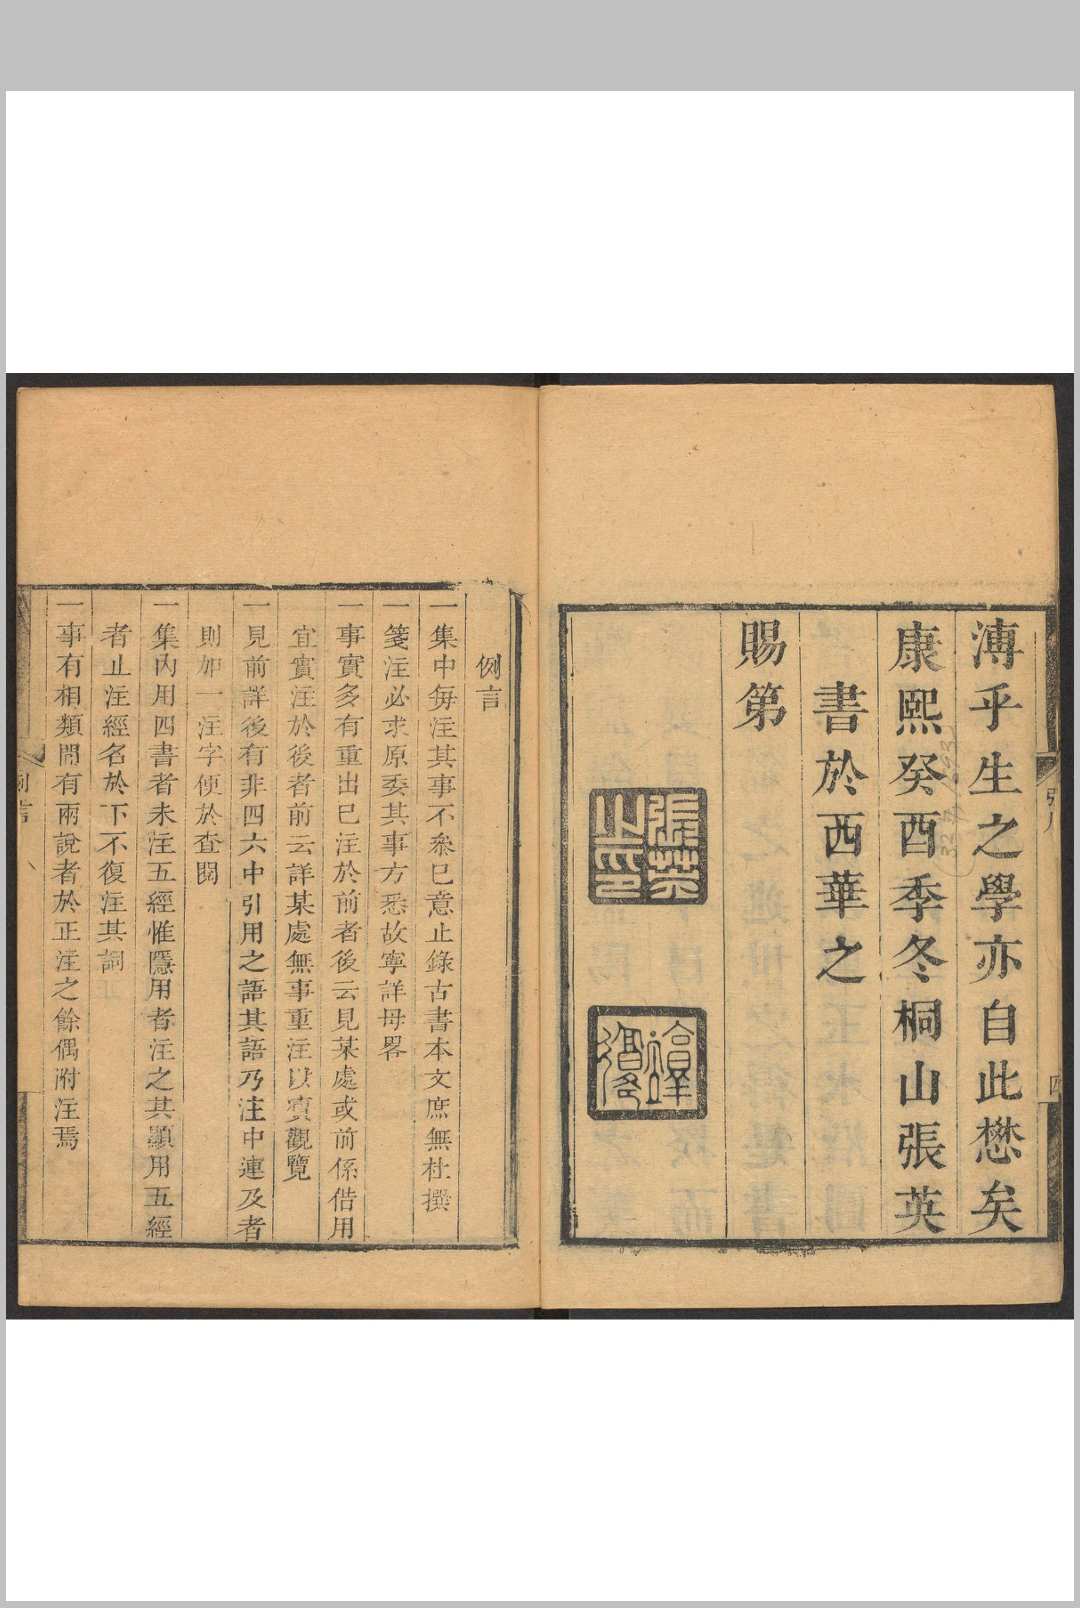 溥乎生之學亦自此懋矣
康熙癸酉季冬桐山張英
書於西華之
賜第
張英之印
例言
一集中每注其事不參已意止錄古書本文庶無杜撰
一箋注必求原委其事方悉故寧詳毋畧
一事實多有重出已注於前者後云見某處或前係借用
宜實注於後者前云詳某處無事重注以資觀覽
一見前詳後有非四六中引用之語其語乃注中連及者
則加一注字便於查閱
一集內用四書者未注五經惟隱用者注之其顯用五經
者止注經名於下不復注其詞
一事有相類間有兩說者於正注之餘偶附注焉
例言